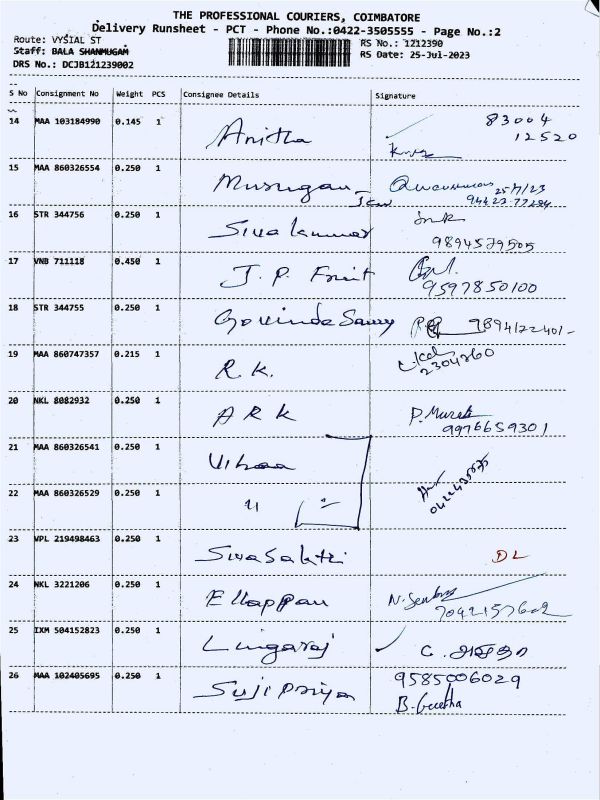 THE PROFESSIONAL COURIERS, COIMBATORE
Delivery Runsheet - PCT - Phone No.:0422-3505555 - Page No.:2
Route: VYSIAL ST
RS No.: 1212390
Staff: BALA SHANMUGAM
RS Date: 25-Jul-2023
DRS No.: DCJB121239002
S No Consignment No Weight PCS Consignee Details Signature
14 MAA 103184990 0.145 1 Anitha 83004
12520
15 MAA 860326554 0.250 1 Murugan 25/7/23
16 STR 344756 0.250 1 Sivakumar
9894579505
17 VNB 711118 0.450 1 J. P. Fruit
9597850100
18 STR 344755 0.250 1 Govinda Samy
19 MAA 860747357 0.215 1 R. K.
2304260
20 NKL 8082932 0.250 1 A R K P. Murali
9976659301
21 MAA 860326541 0.250 1
22 MAA 860326529 0.250 1 "
23 VPL 219498463 0.250 1 Sivasakthi DL
24 NKL 3221206 0.250 1 Ellappan
25 IXM 504152823 0.250 1 Lingaraj C.
26 MAA 102405695 0.250 1 Sujipriya 9585006029
B. Geetha